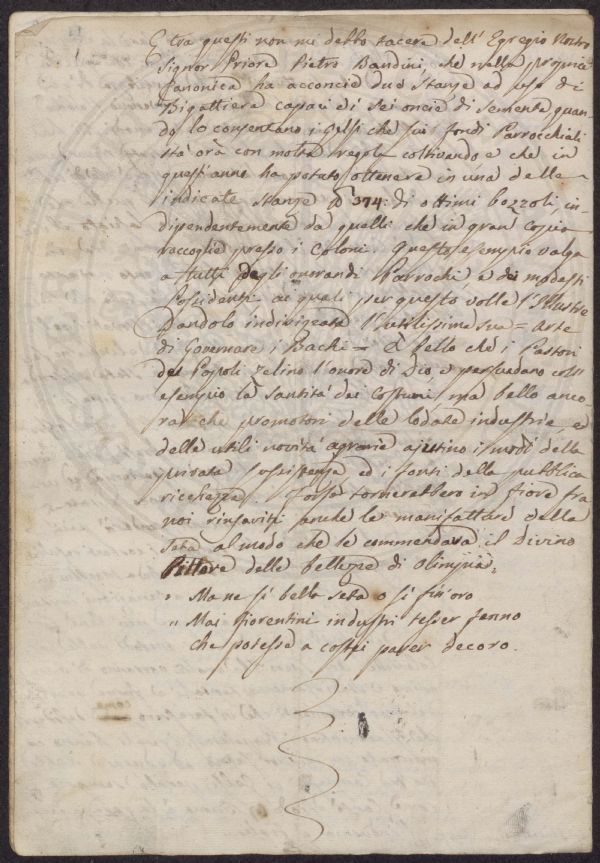 E tra questi non mi debbo tacere dell' Egregio Nostro
Signor Priore Pietro Bandini, che nella propria
Canonica ha acconcie due Stanze ad uso di
Bigattiera capaci di sei oncie di semente quan-
do lo consentano i Gelsi che sui fondi Parrocchiali
stà ora con molta regola coltivando e che in
quest'anno ha potuto ottenere in una delle
indicate Stanze 374: di ottimi bozzoli, in-
dipendentemente da quelli che in gran copia
raccoglie presso i Coloni. Questo esempio valga
a tutti degli onorandi Parrochi, e dei modesti
Possidenti ai quali per questo volle l'Illustre
Dandolo indirizzata l'utilissima sua = Arte
di Governare i Bachi = È bello che i Pastori
dei Popoli zelino l'onore di Dio e persuadano coll'
esempio la Santità dei Costumi, ma bello anco-
ra che promotori delle lodate industrie, e
delle utili novità agrarie ajutino i modi della
privata sussistenza ed i fonti della pubblica
ricchezza. Forse tornerebbero in fiore tra
noi rinsaviti anche le manifatture della
Seta al modo che le commendava il Divino
Pittore delle bellezze di Olimpia:
" Ma ne sì bella seta o sì fin'oro
" Mai Fiorentini industri tesser fenno
che potesse a costei parer decoro.